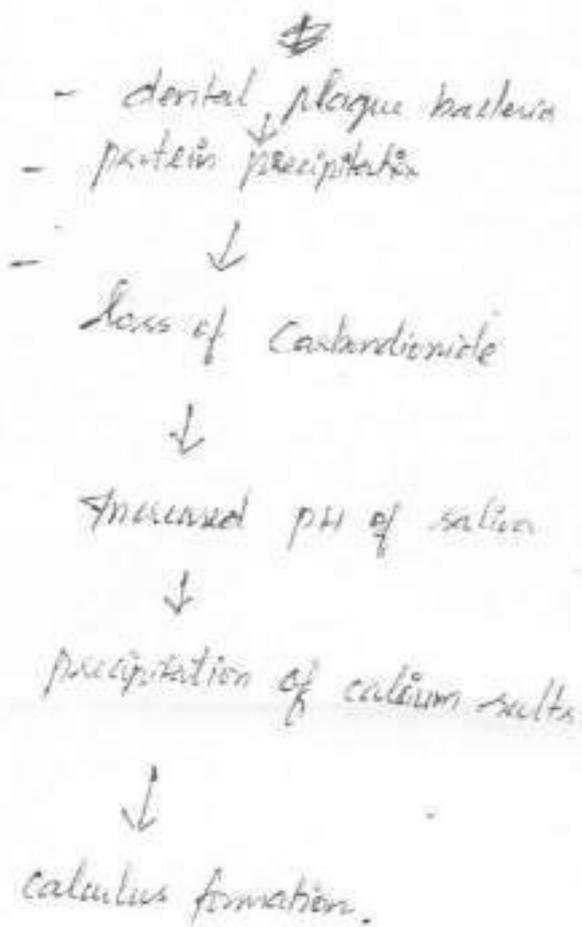 - dental plaque bacteria
↓
- protein precipitation
- ↓
Loss of Carbondioxide
↓
Increased pH of saliva
↓
precipitation of calcium salts
↓
calculus formation.